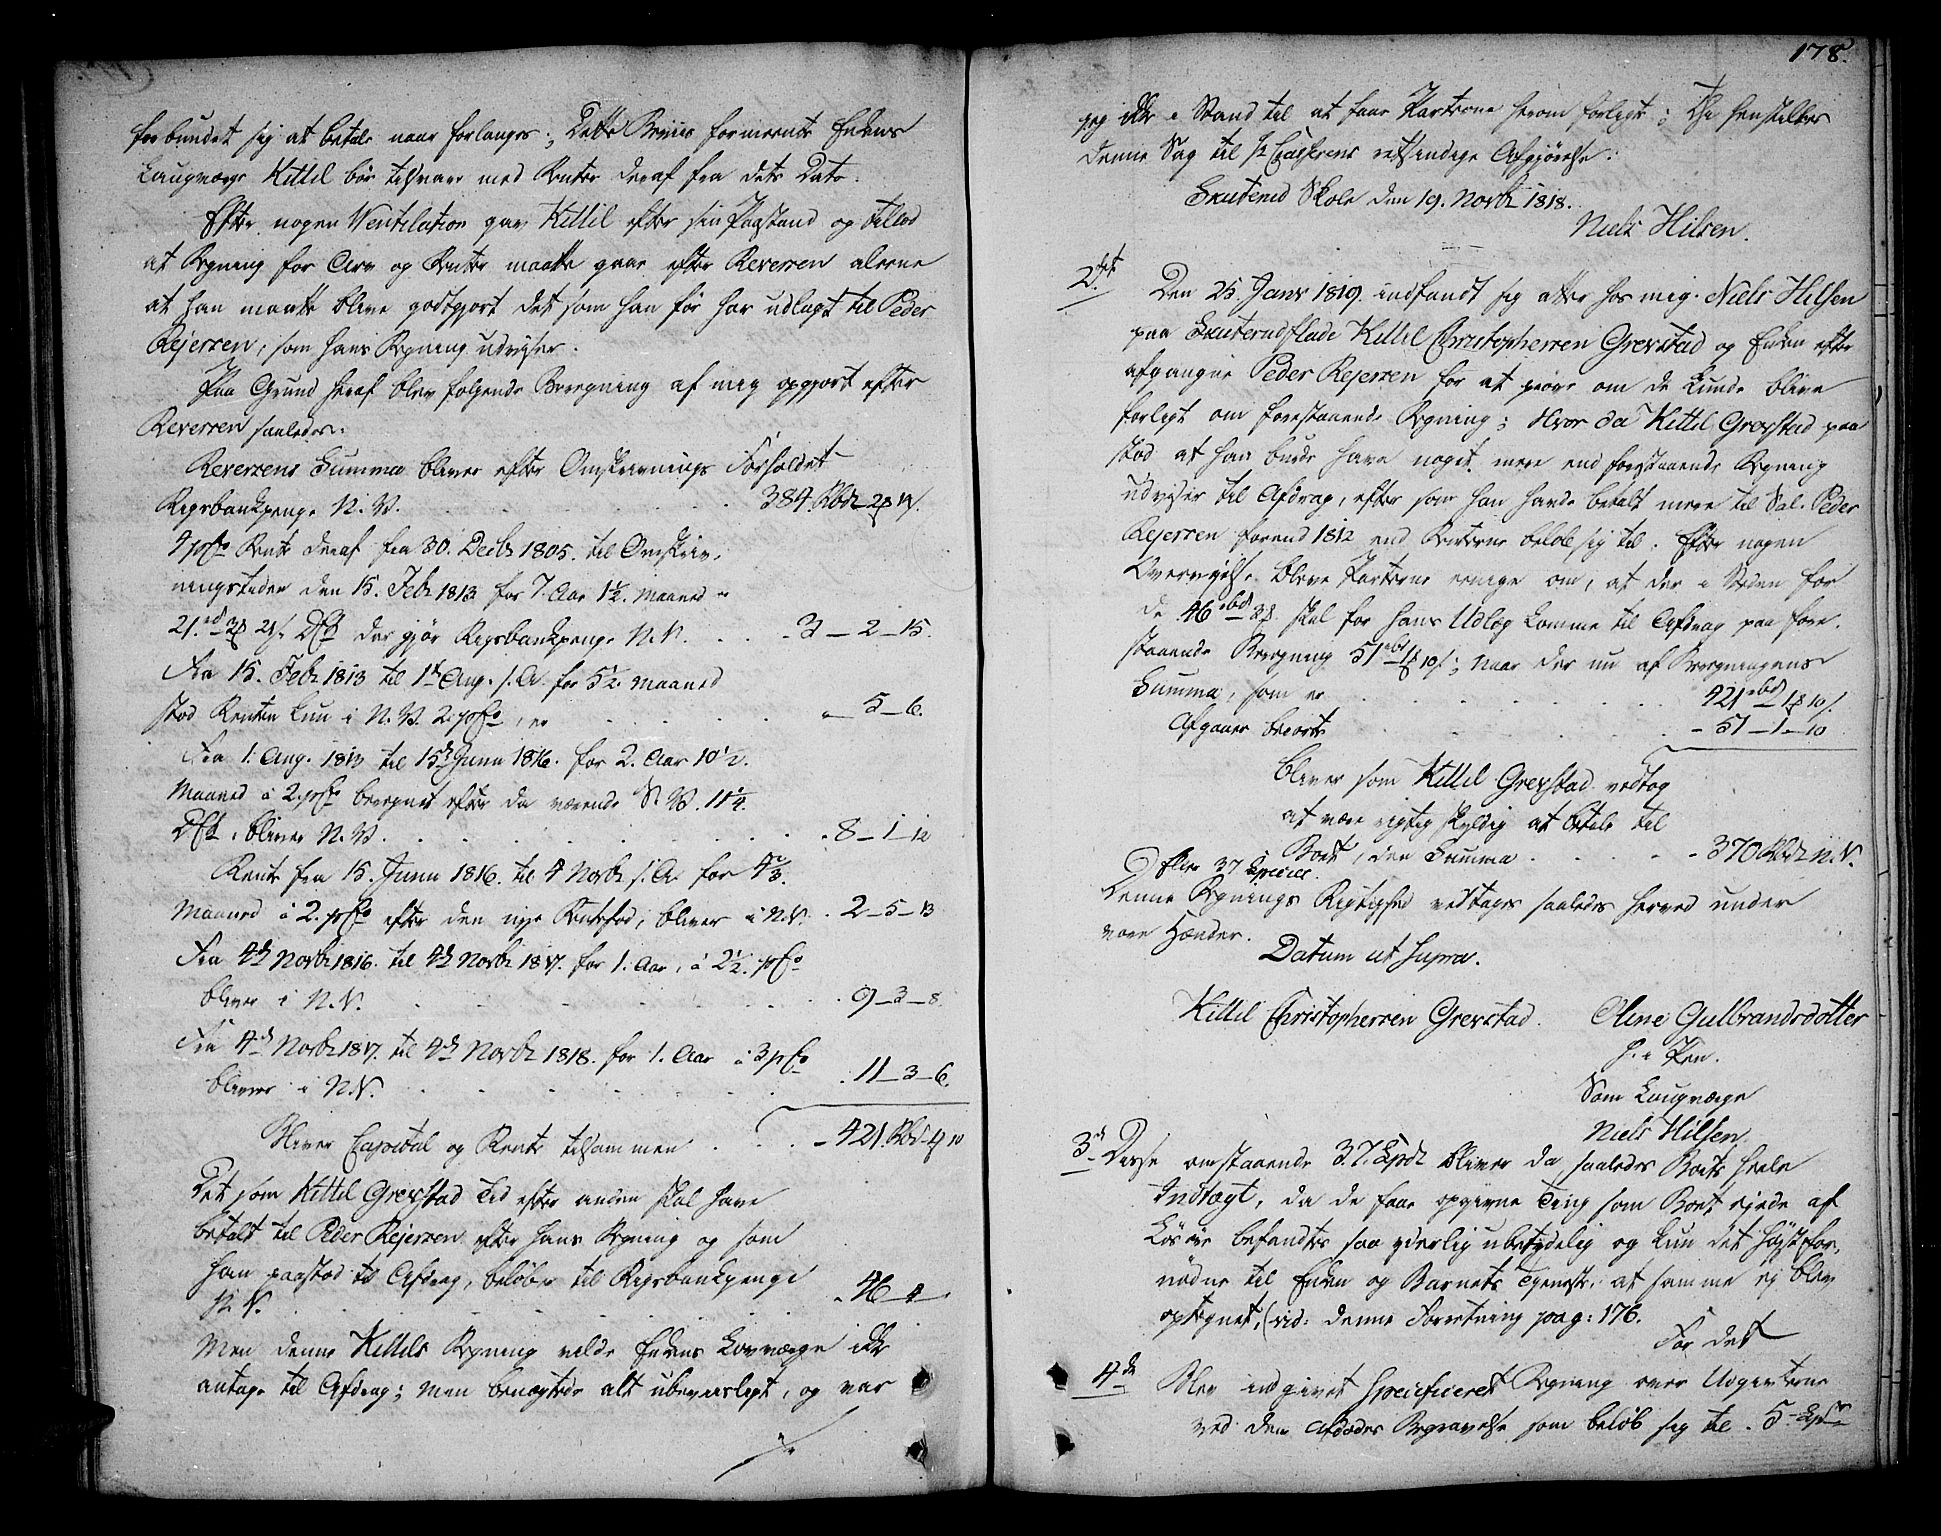 forbundet sig at betale naar forlanges; Dette Beviis formeente Enkens
Laugværge Kittil bör tilsvare med Renter deraf fra dets Dato.
Efter nogen Ventilation gav Kittil efter sin Paastand og tillod
at Regning for Arv og Renter maatte gaae efter Reversen alene
at han maatte blive godtgjort det som han för har udlagt til Peder
Rejersen, som hans Regning udviser.
Paa Grund heraf blev folgende Beregning af mig opgjort efter
Reversen saaledes.
Reversens Summa bliver efter Omskrivnings Forholdet
Rigsbankpenge N. V. 384 Rbd 2
4 pCto Rente deraf fra 30. Decbr 1805. til Omskriv-
ningstiden den 15. Febr 1813 for 7 Aar 1½ Maaned
DC der gjör Rigsbankpenge N. V. 3 – 2 – 15.
Fra 15. Febr 1813 til 1te Aug. s. A. for 5½ Maaned
stod Renten kun i N. V. 2 pCto, er „ – 5 – 6.
Fra 1. Aug. 1813 til 15de Junii 1816. for 2. Aar 10½.
Maaned á 2. pCto beregnet efter da værende S. V. 11¼
DC, bliver N. V. 8 – 1 – 10
Rente fra 15. Junii 1816. til 4 Novbr s. A. for 4⅔.
Maaned á 2. pCto efter den nye Rentefod, bliver i N. V. 2 – 5 – 13
Fra 4de Novbr 1816. til 4de Novbr 1817. for 1. Aar, á 2½. pCto
bliver i N. V. 9 – 3 – 8.
Fra 4de Novbr 1817. til 4de Novbr 1818. for 1. Aar á 3 pCto
bliver i N. V. 11 – 3 – 6.
Bliver Capital og Rente tilsammen 421 Rbd 10
Det som Kittil Grevstad Tid efter anden skal have
betalt til Peder Rejersen efter hans Regning og som
han paastod til Afdrag, belöber til Rigsbankpenge
N. V. 46
Men denne Kittils Regning vilde Enkens Lovværge ikke
antage til Afdrag; men benægtede alt ubeviisligt, og var
178.
jeg ikke i Stand til at faae Parterne herom forligt; Thi henstilles
denne Sag til retsindige Afgjörelse.
Skuterud Skole den 19. Novbr 1818.
Niels Hilsen.
2det Den 25. Janr 1819. indfandt sig atter hos mig Niels Hilsen
paa Skuterudflade Kittil Christophersen Grevstad og Enken efter
afgangne Peder Rejersen for at pröve om de kunde blive
forligt om forestaaende Regning; Hvor da Kittil Grevstad paa
stod at han burde have noget mere end forestaaende Regning
udviser til Afdrag, efter som han havde betalt mere til Sal. Peder
Rejersen forend 1812 end Renterne belöb sig til. Efter nogen
Overvejelse bleve Parterne eenige om, at der i Steden for
de 46 rbd skal for hans Udlæg komme til Afdrag paa fore-
staaende Beregning 51 rbd 1 10; naar der nu af Beregningens
Summa, som er 421 rbd 1 10
Afgaaer bliver som Kittil Grevstad vedtog
51 – 1 – 10
at være rigtig skyldig at betale til
Boet, den Summa 370 Rbd N. V.
eller 37 Species.
Denne Regnings Rigtighed vedtages saaledes herved under
vore Hænder.
Datum ut supra.
Kittil Christophersen Grevstad. Oline Gulbrandsdotter
h. i Pen.
Som Laugværge
Niels Hilsen
3de Disse omstaaende 37. Spd bliver da saaledes Boets heele
Indtægt, da de faae opgivne Ting som Boet ejede af
Lösöre befandtes saa yderlig ubetydelig og kun det höjst for-
nödne til Enken og Barnets Tjeneste, at samme ej blev
optegnet, (vid: denne Forretning pag: 176.
For det
4de Blev indgivet specificeret Regning over Udgivterne
ved den Afdödes Begravelse som belöb sig til 5 Spd